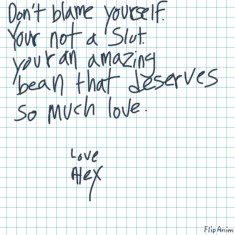 Don't blame yourself.
Your not a Slut.
your an amazing
bean that deserves
so much love.
Love
Alex
FlipAnim